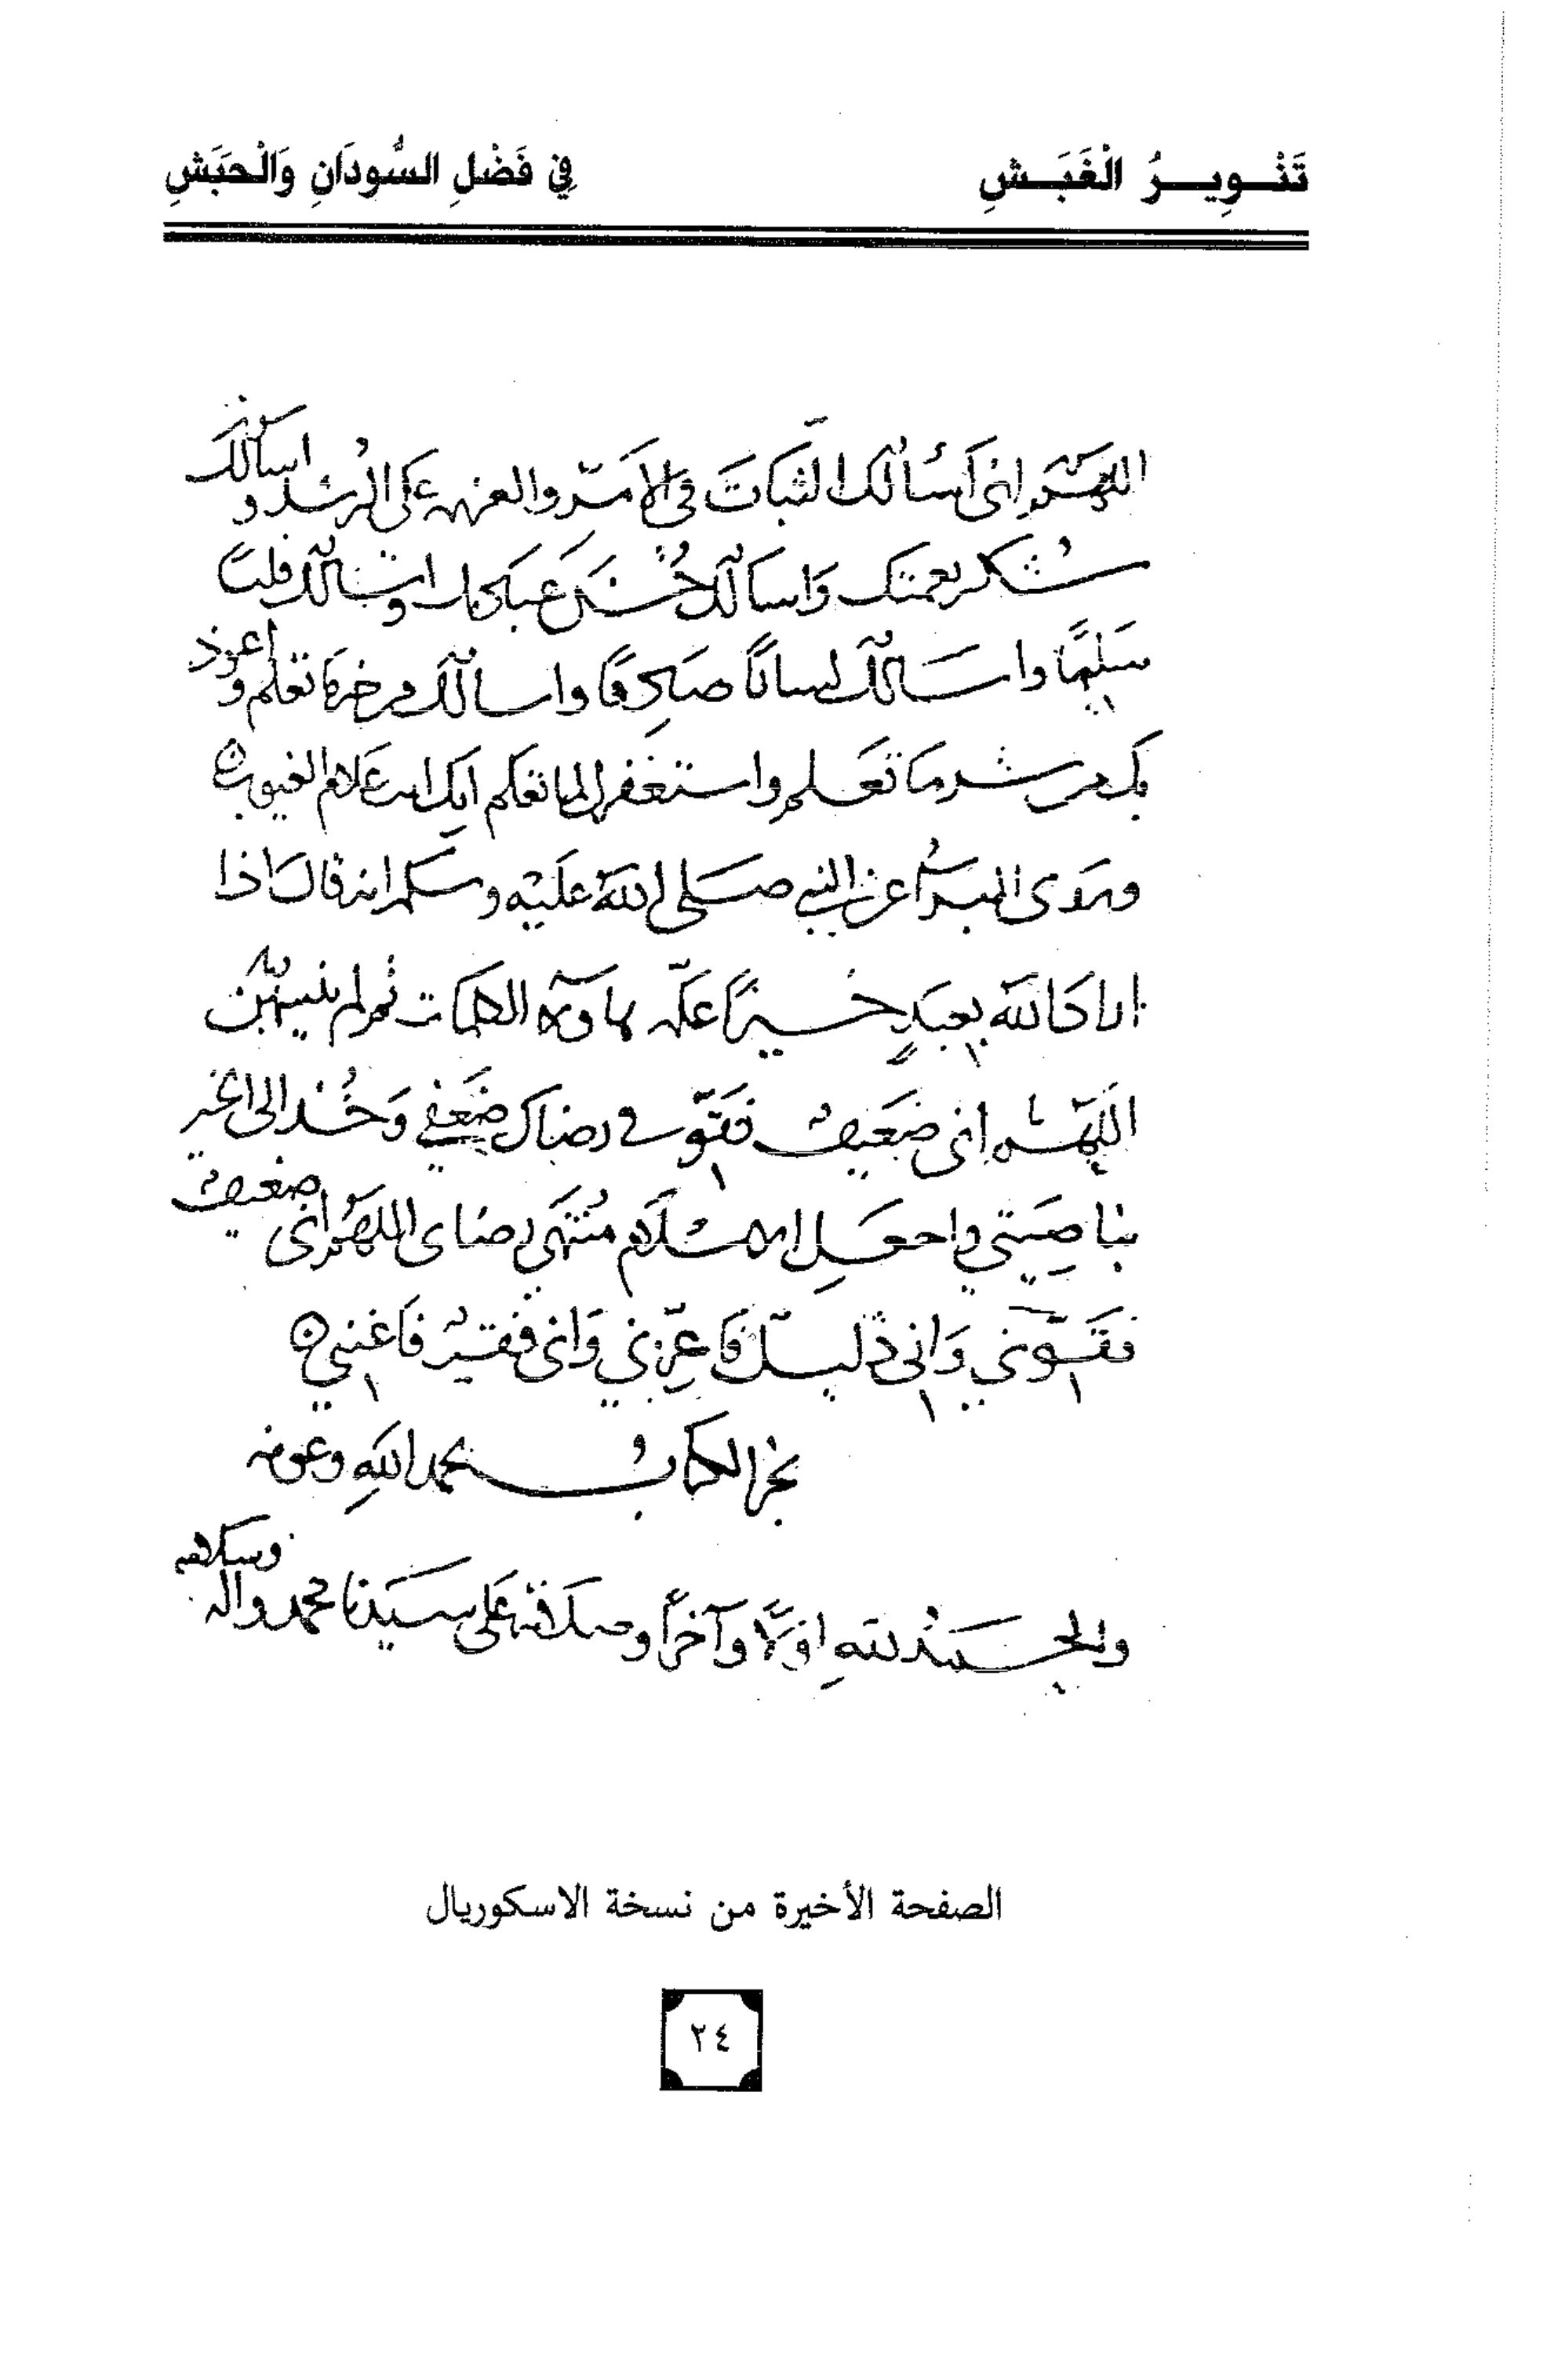 تَنْوِيرُ الْغَبَشِ فِي فَضْلِ السُّودَانِ وَالْحَبَشِ
اللهم انى أسألك الثبات في الأمر والعزيمة على الرشد واسألك
شكر نعمتك واسألك حُسن عبادتك واسألك قلبًا
سليمًا واسألك لسانًا صادقًا واسألك من خير ما تعلم واعوذ
بك من شر ما تعلم واستغفرك لما تعلم انك انت علام الغيوب
وروى البراء عن النبي صلى الله عليه وسلم انه قال اذا
اراد الله بعبدٍ خيرًا علمه هاؤلاء الكلمات ثم لم ينسهن
اللهم انى ضعيف فقوّ في رضاك ضعفي وخُذ الى الخير
بناصيتي واجعل الاسلام مُنتهى رضاى اللهم انى ضعيف
فقوّني وَانى ذليل فاعزّني وَانى فقير فاغنني
نجز الكتاب بحمد اللهِ وعونه
والحمدُ للهِ اوّلًا وآخرًا وصلاته على سيدنا محمد واله وسلامه
الصفحة الأخيرة من نسخة الاسكوريال
٢٤